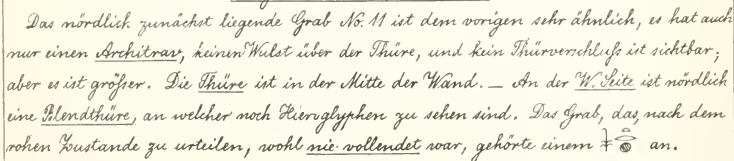 Das nördlich zunächst liegende Grab No. 11 ist dem vorigen sehr ähnlich, es hat auch
nur einen Architrav, keinen Wulst über der Thüre, und kein Thürverschluß ist sichtbar;
aber es ist größer. Die Thüre ist in der Mitte der Wand. — An der W. Seite ist nördlich
eine Blendthüre, an welcher noch Hieroglyphen zu sehen sind. Das Grab, das, nach dem
rohen Zustande zu urteilen, wohl nie vollendet war, gehörte einem an.